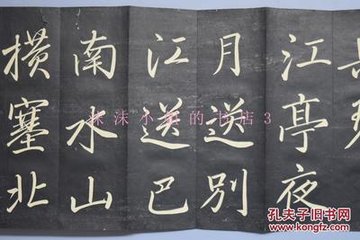 江亭夜
月送別
江送巴
南水山
横塞北
沫小
的书店3
孔夫子旧书网
KONGFZ.COM